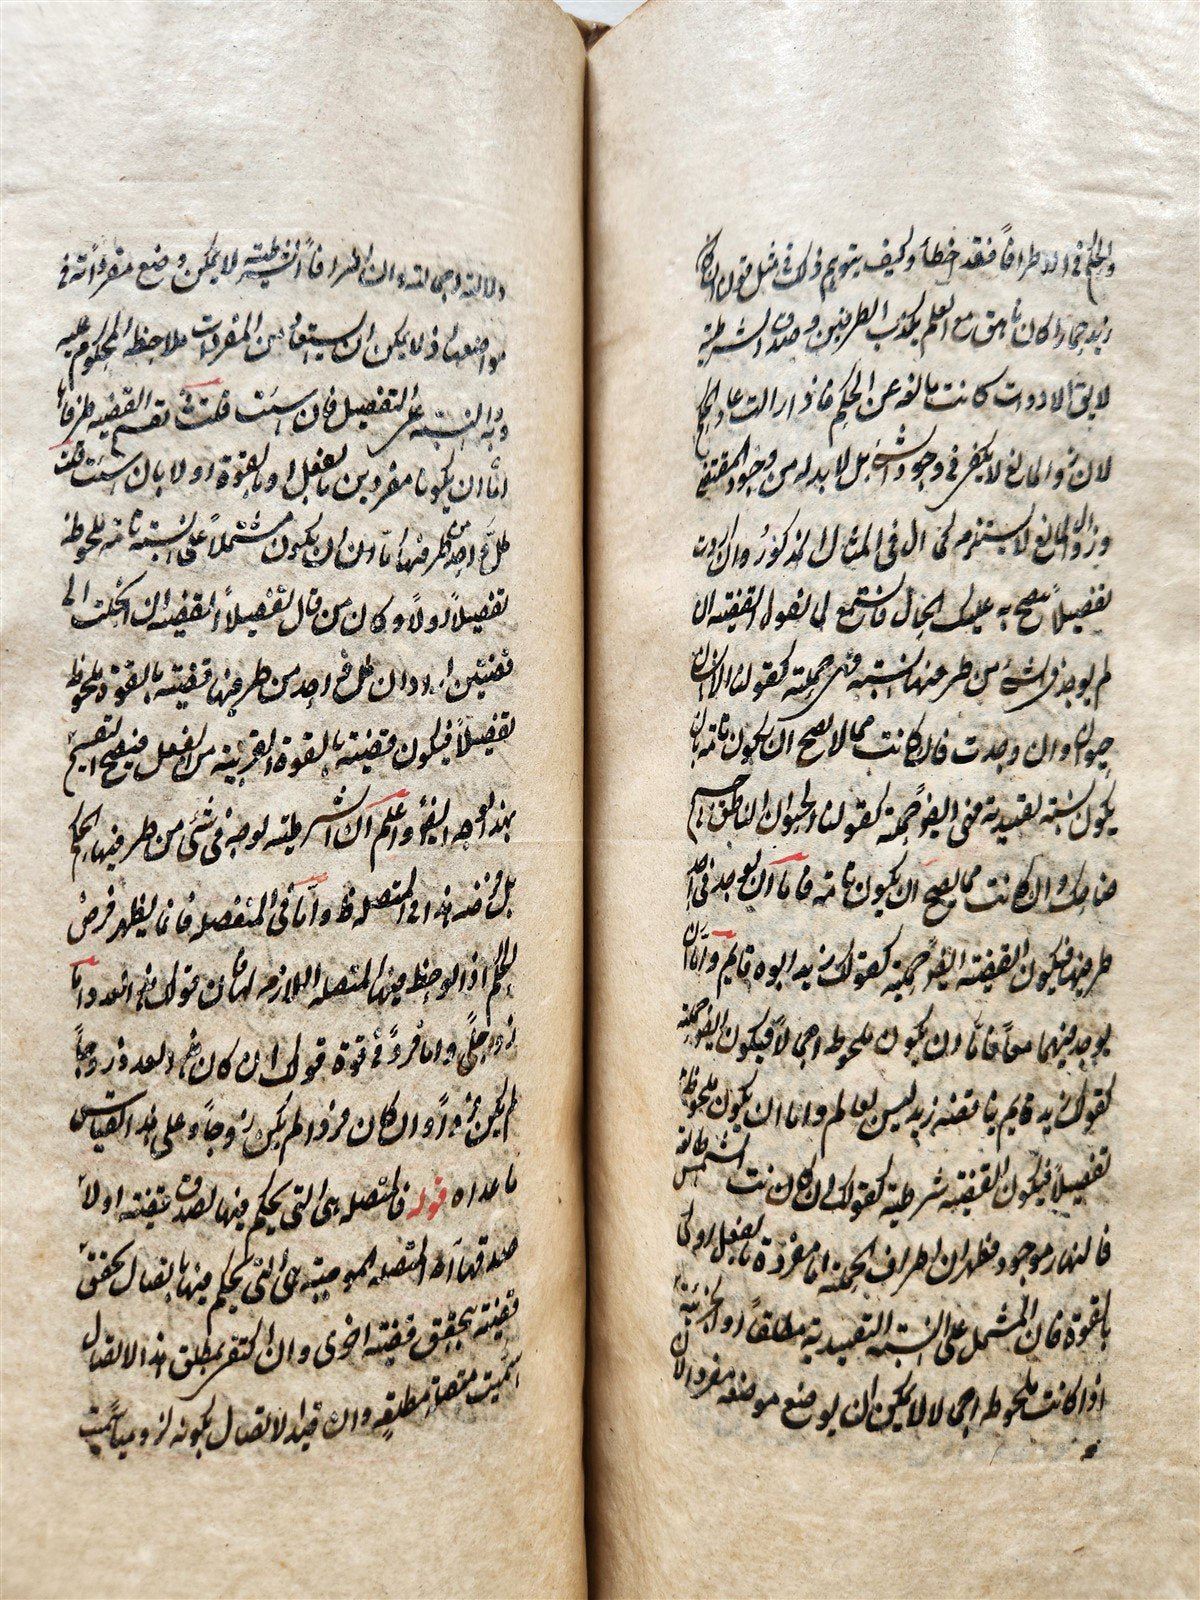 والحكم في الاطرافا فقد اخطأ وكيف يتوهم ذلك في مثل قولنا ان كان
زيد حمارا كان ناهق مع العلم بكذب الطرفين وصدق الشرطية
لا يق الادوات كانت مانعة عن الحكم فاذا زالت عاد الحكم
لان زوال المانع لا يكفي في وجود الشئ بل لا بد له من وجود المقتضى
وزوال المانع لا يستلزم كما ال في المثال المذكور وان اردت
تفصيلا يتضح به عليك الحال فاستمع لما نقول القضية ان
لم يوجد في شئ من طرفيها نسبة فهي حملية كقولنا الانسان
حيوان وان وجدت فان كانت مما لا يصح ان يكون تامة بان
يكون نسبة تقييدية فهي ايضا حملية كقولنا الحيوان الناطق جسم
ضاحك وان كانت مما يصح ان يكون تامة فاما ان يوجد في احد
طرفيها فيكون القضية ايضا حملية كقولك زيد ابوه قائم واما ان
يوجد فيهما معا فاما ان يكون ملحوظة اجمالا فيكون ايضا حملية
كقولك زيد قايم يناقضه زيد ليس بعالم واما ان يكون ملحوظة
تفصيلا فيكون القضية شرطية كقولك ان كانت الشمس طالعة
فالنهار موجود فظهر ان اطراف الحملية اما مفردة بالفعل او
بالقوة فان المشتمل على النسبة التقييدية مطلقا او الخبرية
اذا كانت ملحوظة اجمالا يمكن ان يوضع موضعه مفرد لان
دلالته اجمالية وان اطرافا الشرطية لا يمكن وضع مفردات في
مواضعها اذ لا يمكن ان يستفاد من المفردات ملاحظة المحكوم عليه
وبه والنسبة على التفصيل فان شئت قلت في تقسيم القضية طرفاها
اما ان يكونا مفردين بالفعل او بالقوة او لا بان شئت قلت
كل واحد من طرفيها اما ان يكون مشتملا على نسبة تامة ملحوظة
تفصيلا اولا وكان من قال تفصيلا القضية ان انحلت الى
قضيتين اراد ان كل واحد من طرفيها قضية بالقوة ملحوظة
تفصيلا فيكون قضية بالقوة القريبة من الفعل فيصح التقسيم
بهذا الوجه ايضا واعلم ان الشرطية لا يوجد في شئ من طرفيها الحكم
بل فرضه هذا في المتصلة ظ واما في المنفصلة فانما يظهر فرض
الحكم اذا لوحظ فيها المتصلة اللازمة لها فان قولك هذا العدد اما
زوج واما فرد في قوة قولك ان كان هذا العدد زوجا
لم يكن فردا وان كان فردا لم يكن زوجا وعلى هذا القياس
ما عداه قوله فالمتصلة هي التي يحكم فيها بصدق قضية اولا
صدقها آه المتصلة الموجبة هي التي يحكم فيها باتصال تحقق
قضية بتحقق قضية اخرى وان اكتفى بمطلق هذا الاتصال
سميت متصلة مطلقة وان قيد الاتصال بكونه لزوميا سميت